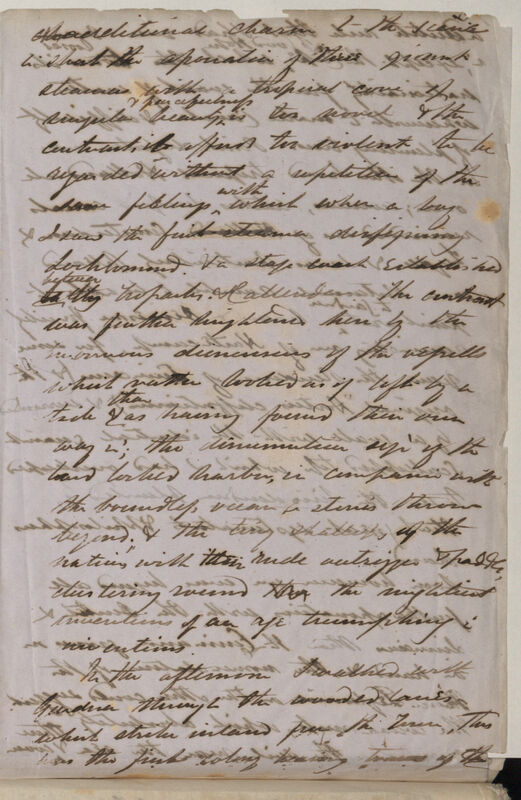 additional charm to the scene
is that the apparition of three giant
steamers with a tropical cove of
& peacefulness
singular beauty, is too novel & the
contrast it affords too violent to be
regarded without a repetition of the
feelings with which when a boy
I saw the first steamer disfiguring
Lochlomond, & a stage coach established
between
the Trosachs & Callendar. The contrast
was further heightened here by the
enormous dimensions of the vessells
which rather looked as if left by a
tide than as having found their own
way in; the diminutive size of the
land locked harbor, in comparison with
the boundless ocean & stones thrown
beyond; & the tiny of the
natives with their rude outrigger & paddles,
clustering round the mightiest
inventions of an age triumphing in
inventions.
In the afternoon I walked with
Gardner through the wooded lanes
which strike inland from the Town, This
was the first colony bearing traces of the